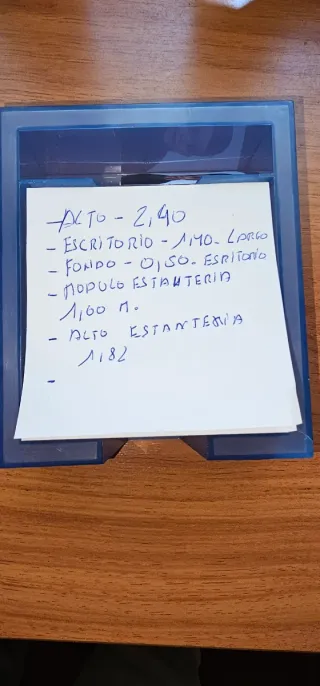 - ALTO - 2,40
- ESCRITORIO - 1,40 - LARGO
- FONDO - 0,50 - ESRITORIO
- MODULO ESTANTERIA
1,00 M.
- ALTO ESTANTERIA
1,82
-